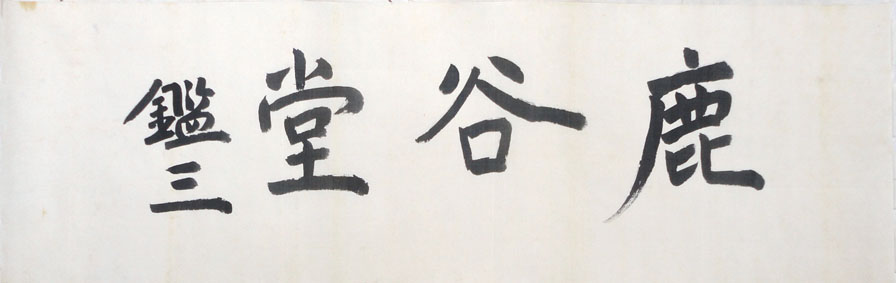 鹿谷堂
鑑三